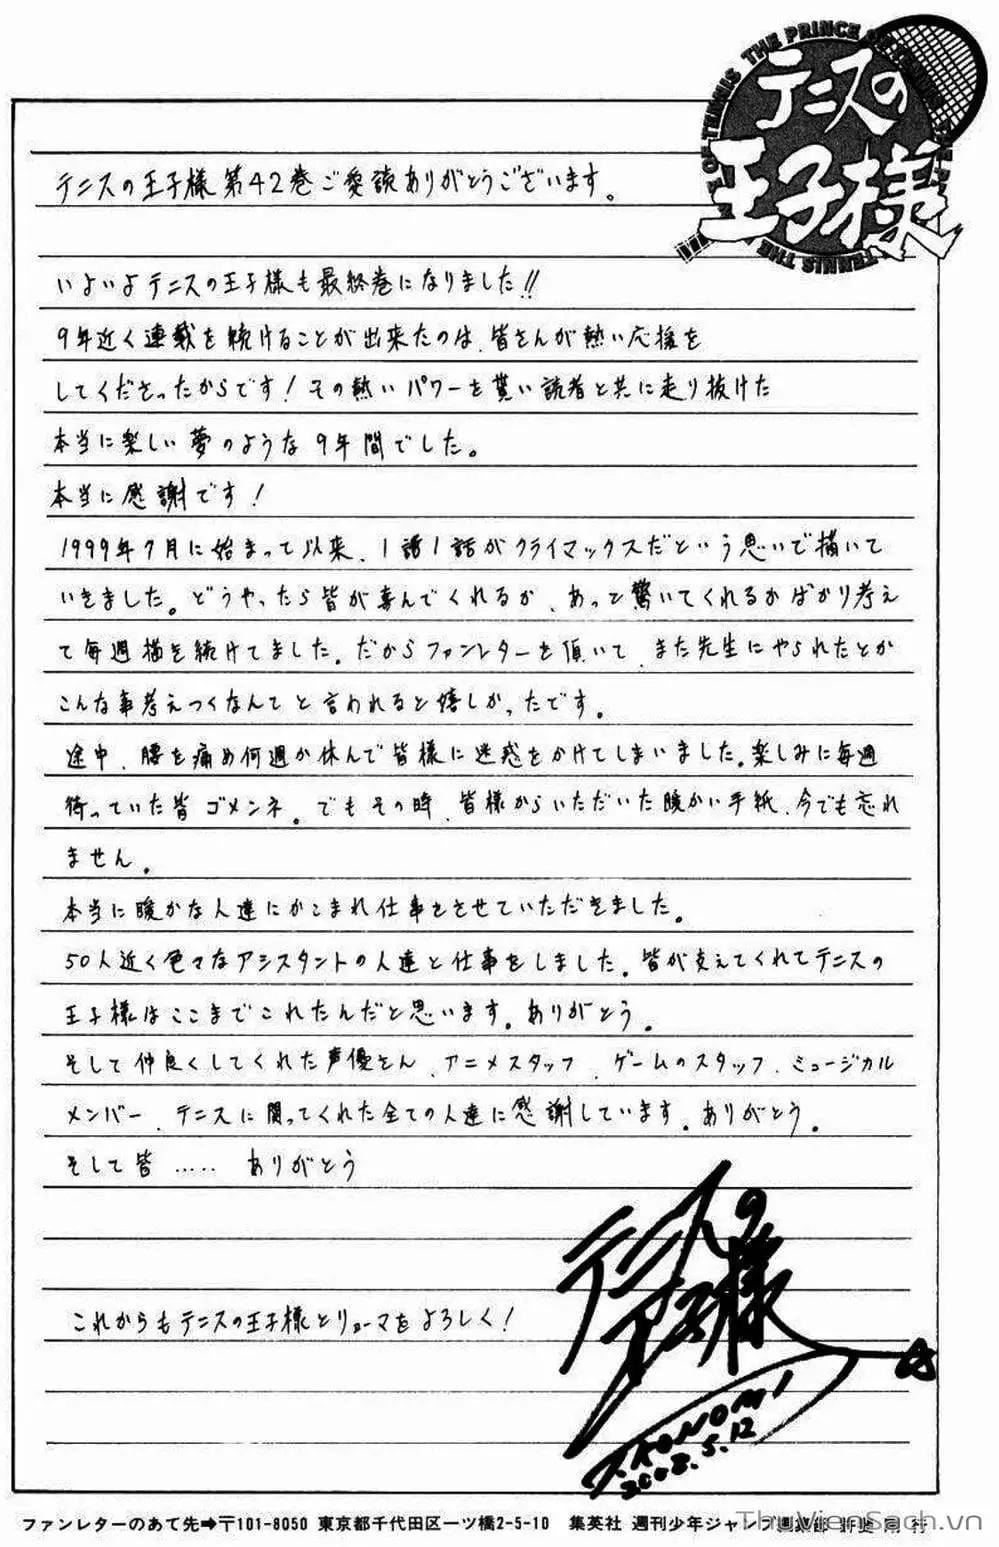 THE PRINCE OF TENNIS THE PRINCE OF TENNIS
テニスの
王子様
テニスの王子様第42巻ご愛読ありがとうございます。
いよいよテニスの王子様も最終巻になりました!!
9年近く連載を続けることが出来たのは、皆さんが熱い応援を
してくださったからです!その熱いパワーを貰い読者と共に走り抜けた
本当に楽しい夢のような9年間でした。
本当に感謝です!
1999年7月に始まって以来、1話1話がクライマックスだという思いで描いて
いきました。どうやったら皆が喜んでくれるか、あっと驚いてくれるかばかり考え
て毎週描き続けてました。だからファンレターを頂いて、また先生にやられたとか
こんな事考えつくなんてと言われると嬉しかったです。
途中、腰を痛め何週か休んで皆様に迷惑をかけてしまいました。楽しみに毎週
待っていた皆ゴメンネ。でもその時、皆様からいただいた暖かい手紙、今でも忘れ
ません。
本当に暖かな人達にかこまれ仕事をさせていただきました。
50人近く色々なアシスタントの人達と仕事をしました。皆が支えてくれてテニスの
王子様はここまでこれたんだと思います。ありがとう。
そして仲良くしてくれた声優さん、アニメスタッフ、ゲームのスタッフ、ミュージカル
メンバー、テニスに関ってくれた全ての人達に感謝しています。ありがとう。
そして皆…… ありがとう
これからもテニスの王子様とリョーマをよろしく!
テニスの
王子様
T.KONOMI
2008.5.12
ファンレターのあて先➡〒101-8050 東京都千代田区一ツ橋2-5-10 集英社 週刊少年ジャンプ編集部
ThuVienSach.vn